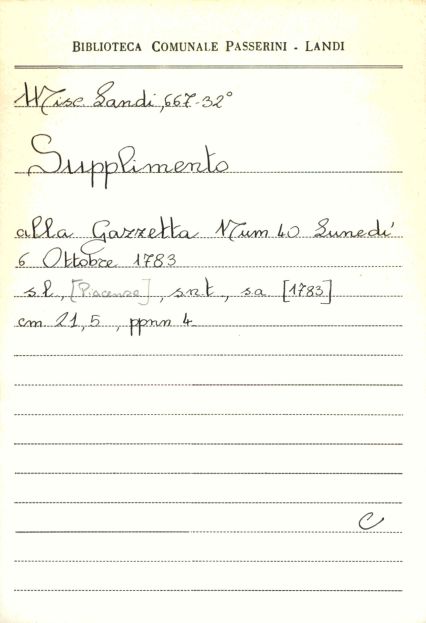 BIBLIOTECA COMUNALE PASSERINI - LANDI
Misc. Landi, 667-32°
Supplimento
alla Gazzetta Num 40 Lunedí
6 Ottobre 1783
s.l., [Piacenza], snt, sa [1783]
cm 21,5, ppnn 4
C